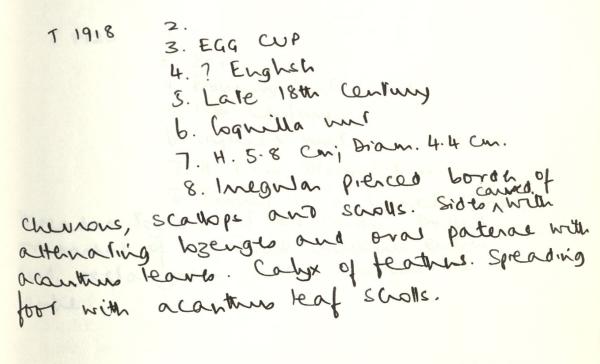 T 1918 2.
3. EGG CUP
4. ? English
5. Late 18th Century
6. Coquilla nut
7. H. 5.8 Cm; Diam. 4.4 Cm.
8. Irregular pierced border of
chevrons, scallops and scrolls. Sides carved with
alternating lozenges and oval paterae with
acanthus leaves. Calyx of feathers. Spreading
foot with acanthus leaf scrolls.